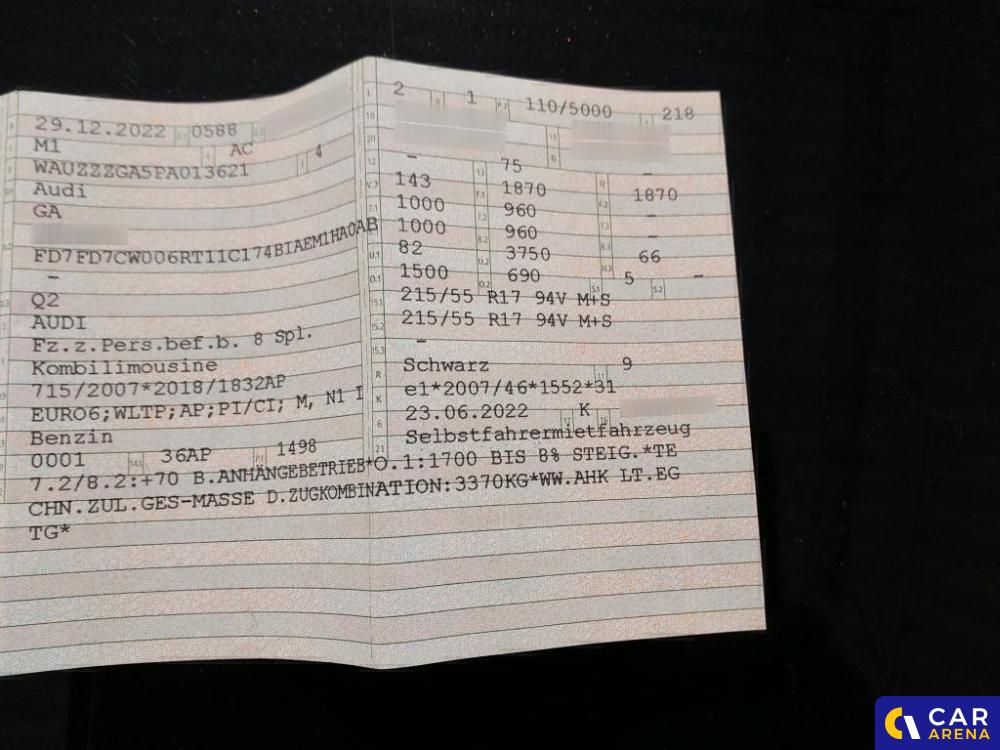 29.12.2022 0588
M1 AC
WAUZZZGA5PA013621 4
Audi
GA
FD7FD7CW006RT11C174BIAEM1HA0AB
–
Q2
AUDI
Fz.z.Pers.bef.b. 8 Spl.
Kombilimousine
715/2007*2018/1832AP
EURO6;WLTP;AP;PI/CI; M, N1 I
Benzin
0001 36AP 1498
2 1 110/5000 218
– 75 –
143 1870 1870
1000 960 –
1000 960 –
82 3750 66
1500 690 5 –
215/55 R17 94V M+S
215/55 R17 94V M+S
–
Schwarz 9
e1*2007/46*1552*31
23.06.2022 K
Selbstfahrermietfahrzeug
7.2/8.2:+70 B.ANHÄNGEBETRIEB*O.1:1700 BIS 8% STEIG.*TE
CHN.ZUL.GES-MASSE D.ZUGKOMBINATION:3370KG*WW.AHK LT.EG
TG*
CAR
ARENA